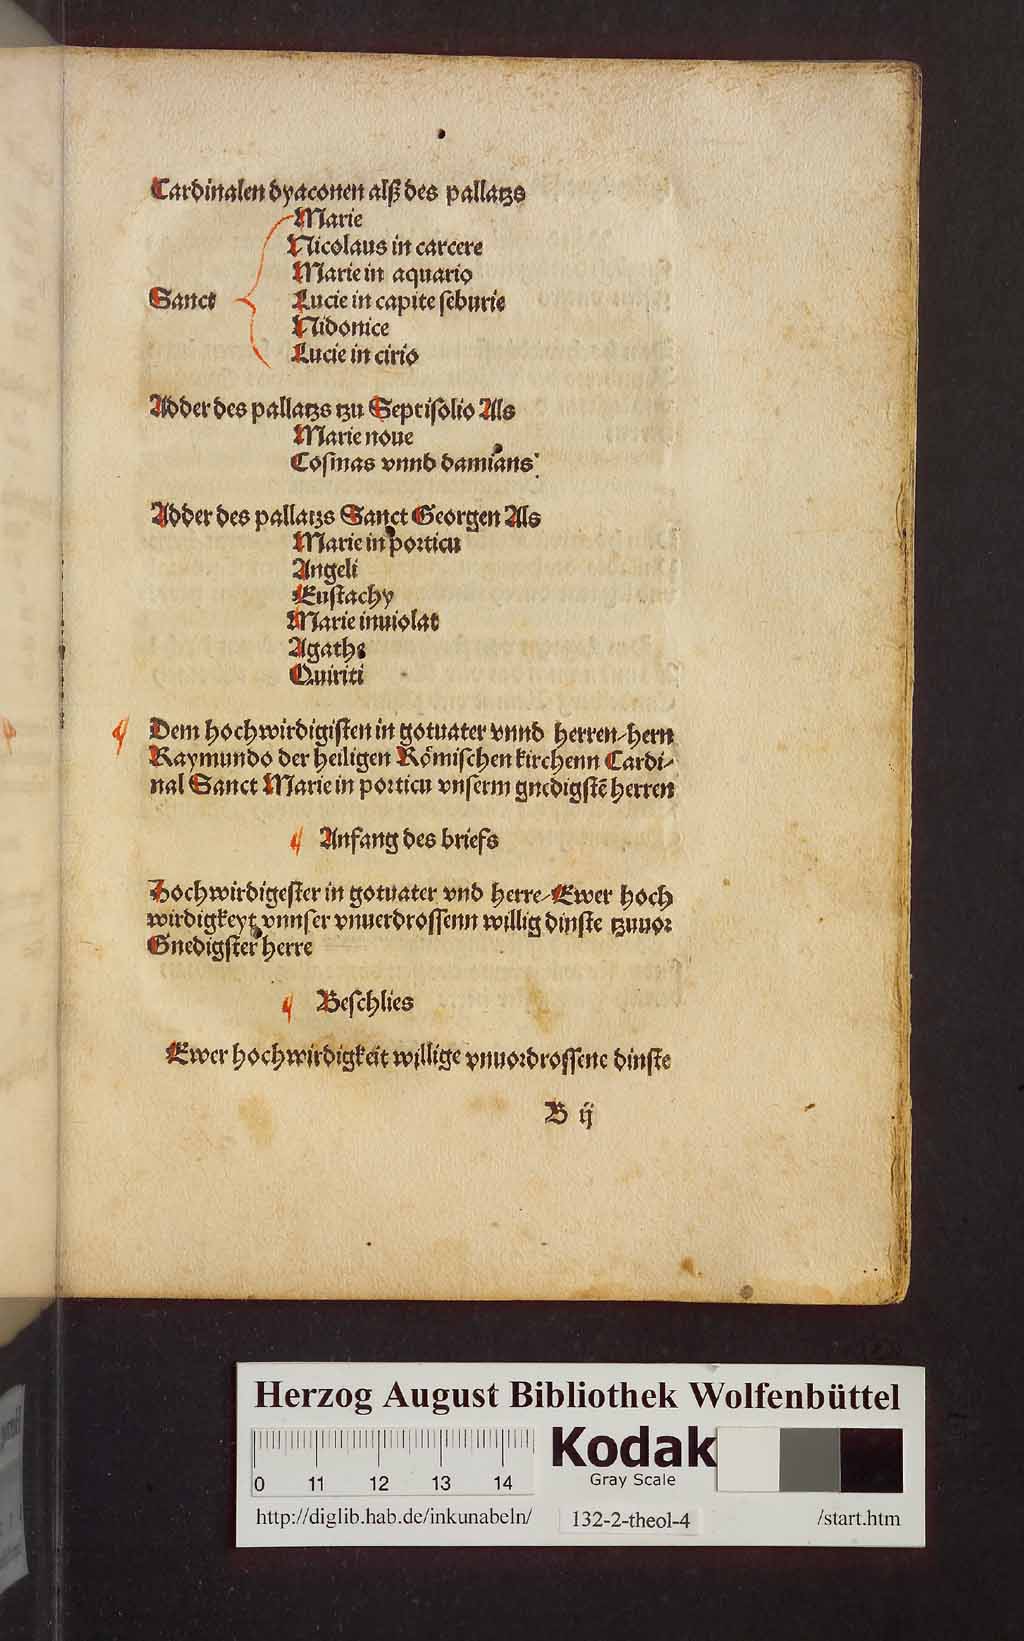 Cardinalen dyaconen alß des pallatzs
Marie
Nicolaus in carcere
Marie in aquario
Sanct Lucie in capite ſeburie
Nidonice
Lucie in cirio
Adder des pallatzs tzu Septiſolio Als
Marie noue
Coſmas vnnd damians
Adder des pallatzs Sanct Georgen Als
Marie in porticu
Angeli
Euſtachy
Marie inuiolat
Agathe
Quiriti
Dem hochwirdigiſten in gotuater vnnd herren/hern
Raymundo der heiligen Römiſchen kirchenn Cardi/
nal Sanct Marie in porticu vnſerm gnedigſtē herren
Anfang des briefs
Hochwirdigeſter in gotuater vnd herre/Ewer hoch
wirdigkeyt vnnſer vnuerdroſſenn willig dinſte tzuuor
Gnedigſter herre
Beſchlies
Ewer hochwirdigkeit willige vnuordroſſene dinſte
B ij
Herzog August Bibliothek Wolfenbüttel
0 11 12 13 14
Kodak
Gray Scale
http://diglib.hab.de/inkunabeln/ 132-2-theol-4 /start.htm